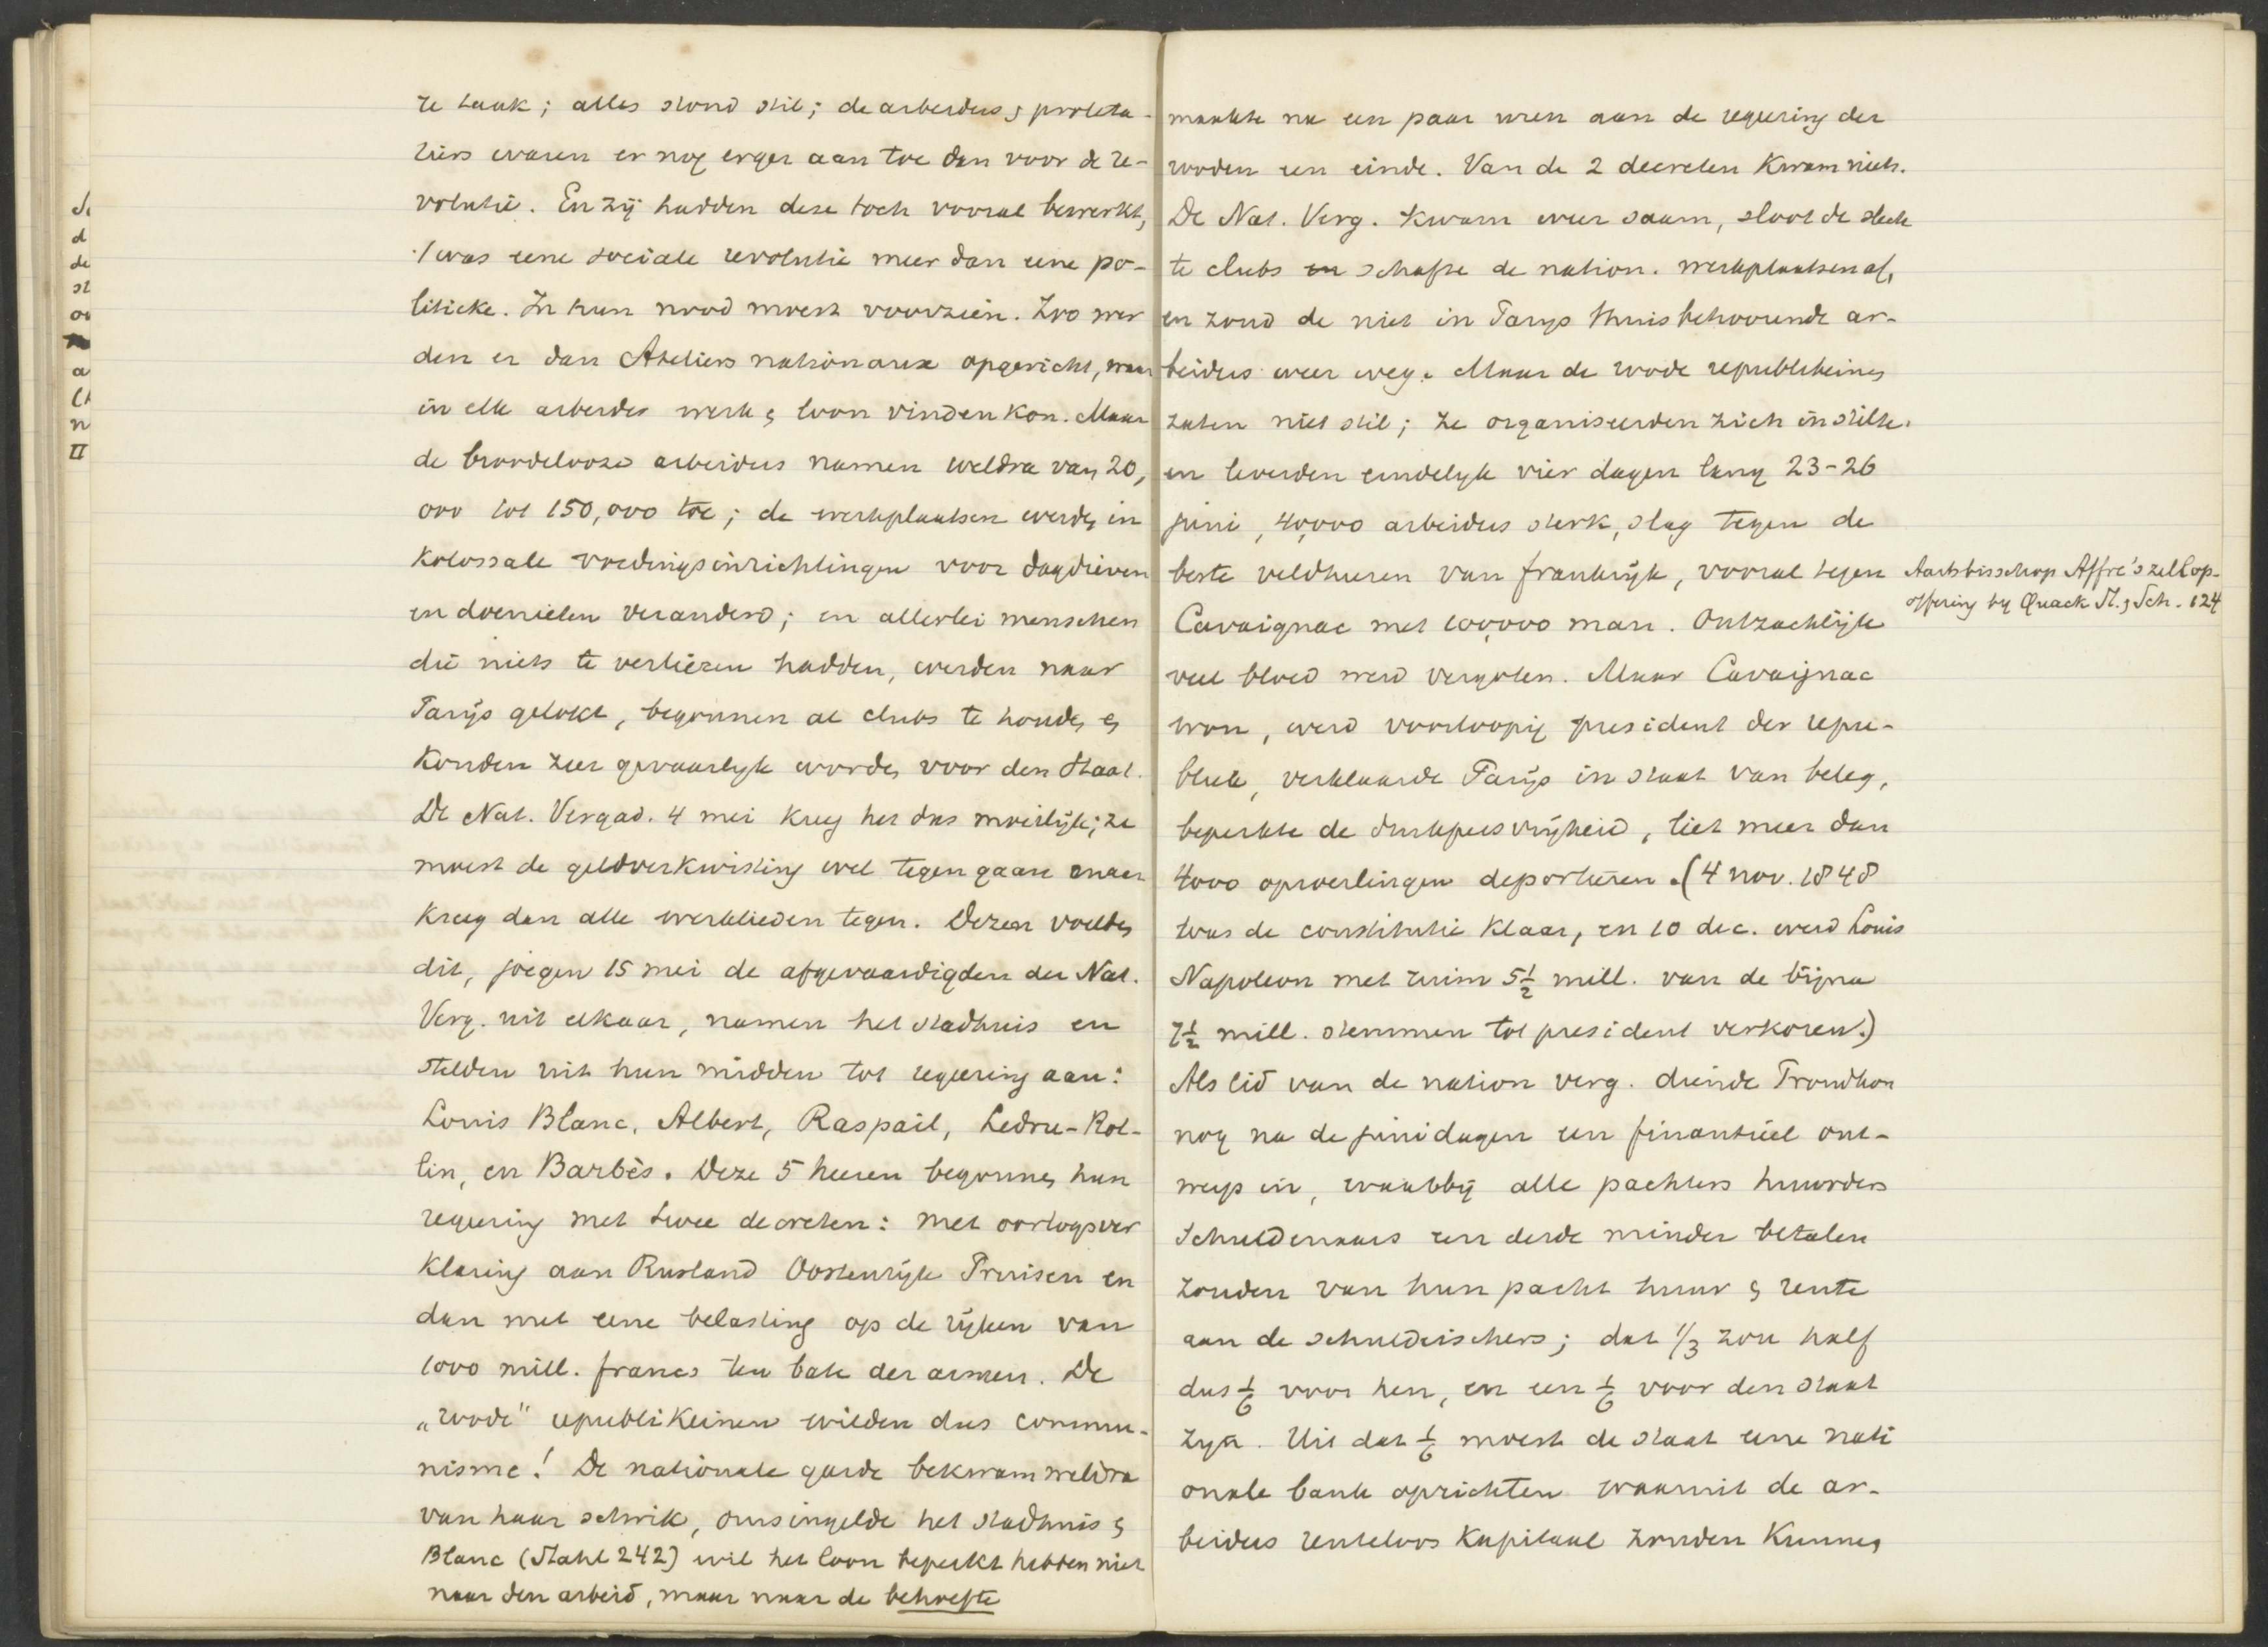 te taak; alles stond stil; de arbeiders & proleta-
riërs waren er nog erger aan toe dan voor de re-
volutie. En zij hadden deze toch vooral bewerkt,
't was eene sociale revolutie meer dan eene po-
litieke. In hun nood moest voorzien. Zoo wer
den er dan Ateliers nationaux opgericht, waar
in elk arbeider werk & loon vinden kon. Maar
de broodelooze arbeiders namen weldra van 20,
000 tot 150,000 toe; de werkplaatsen werden in
kolossale voedingsinrichtingen voor dagdieven
en doenieten veranderd; en allerlei menschen
die niets te verliezen hadden, werden naar
Parijs gelokt, begonnen al clubs te houden en
konden zeer gevaarlijk worden voor den Staat.
De Nat. Vergad. 4 mei kreeg het dus moeilijk; ze
moest de geldverkwisting wel tegen gaan maar
kreeg dan alle werklieden tegen. Dezen voelden
dit, joegen 15 mei de afgevaardigden der Nat.
Verg. uit elkaar, namen het stadhuis en
stelden uit hun midden tot regeering aan:
Louis Blanc, Albert, Raspail, Ledru-Rol-
lin, en Barbès. Deze 5 heeren begonnen hun
regeering met twee decreten: met oorlogsver
klaring aan Rusland Oostenrijk Pruisen en
dan met eene belasting op de rijken van
1000 mill. francs ten bate der armen. De
„roode" republikeinen wilden dus commu-
nisme! De nationale garde bekwam weldra
van haar schrik, omsingelde het stadhuis &
Blanc (Stahl 242) wil het loon beperkt hebben niet
naar den arbeid, maar naar de behoefte
maakte na een paar uren aan de regeering der
rooden een einde. Van de 2 decreten kwam niets.
De Nat. Verg. kwam weer saam, sloot de slech
te clubs schafte de nation. werkplaatsen af,
en zond de niet in Parijs thuisbehoorende ar-
beiders weer weg. Maar de roode republikeinen
zaten niet stil; ze organiseerden zich in stilte.
en leverden eindelijk vier dagen lang 23-26
juni, 40,000 arbeiders sterk, slag tegen de
beste veldheeren van frankrijk, vooral tegen
Cavaignac met 100,000 man. Ontzachlijk
veel bloed werd vergoten. Maar Cavaignac
won, werd voorloopig president der repu-
bliek, verklaarde Parijs in staat van beleg,
beperkte de drukpersvrijheid, liet meer dan
4000 oproerlingen deporteren. (4 nov. 1848
was de constitutie klaar, en 10 dec. werd Louis
Napoleon met ruim 5½ mill. van de bijna
7½ mill. stemmen tot president verkoren.)
Als lid van de nation verg. diende Proudhon
nog na de junidagen een finantiëel ont-
werp in, waarbij alle pachters huurders
schuldenaars een derde minder betalen
zouden van hun pacht huur & rente
aan de schuldeischers; dat 1/3 zou half
dus 1/6 voor hen, en een 1/6 voor den staat
zijn. Uit dat 1/6 moest de staat eene nati
onale bank oprichten waaruit de ar-
beiders renteloos kapitaal zouden kunnen
Aartsbisschop Affre's zelfop-
offering by Quack St. & Sch. 124